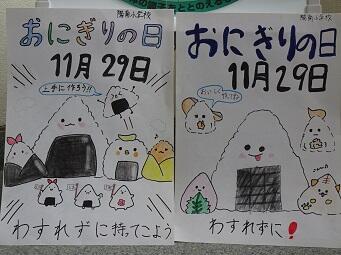 陽南小学校
おにぎりの日
11月29日
上手に作ろう!!
わすれずに持ってこよう
陽南小学校
おにぎりの日
11月29日
わすれずに!